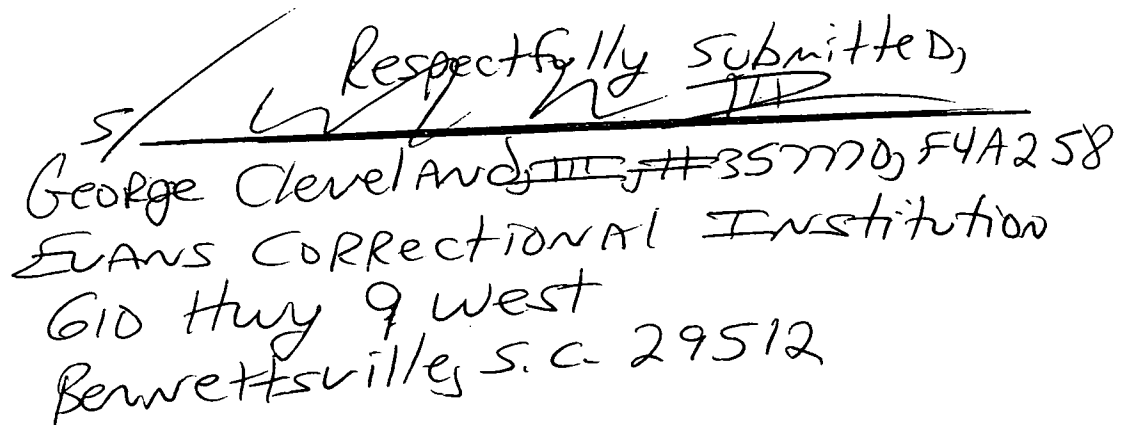 Respectfully Submitted,
S/ III
George Cleveland, III, #357770, F4A258
Evans Correctional Institution
610 Hwy 9 West
Bennettsville, S.C. 29512